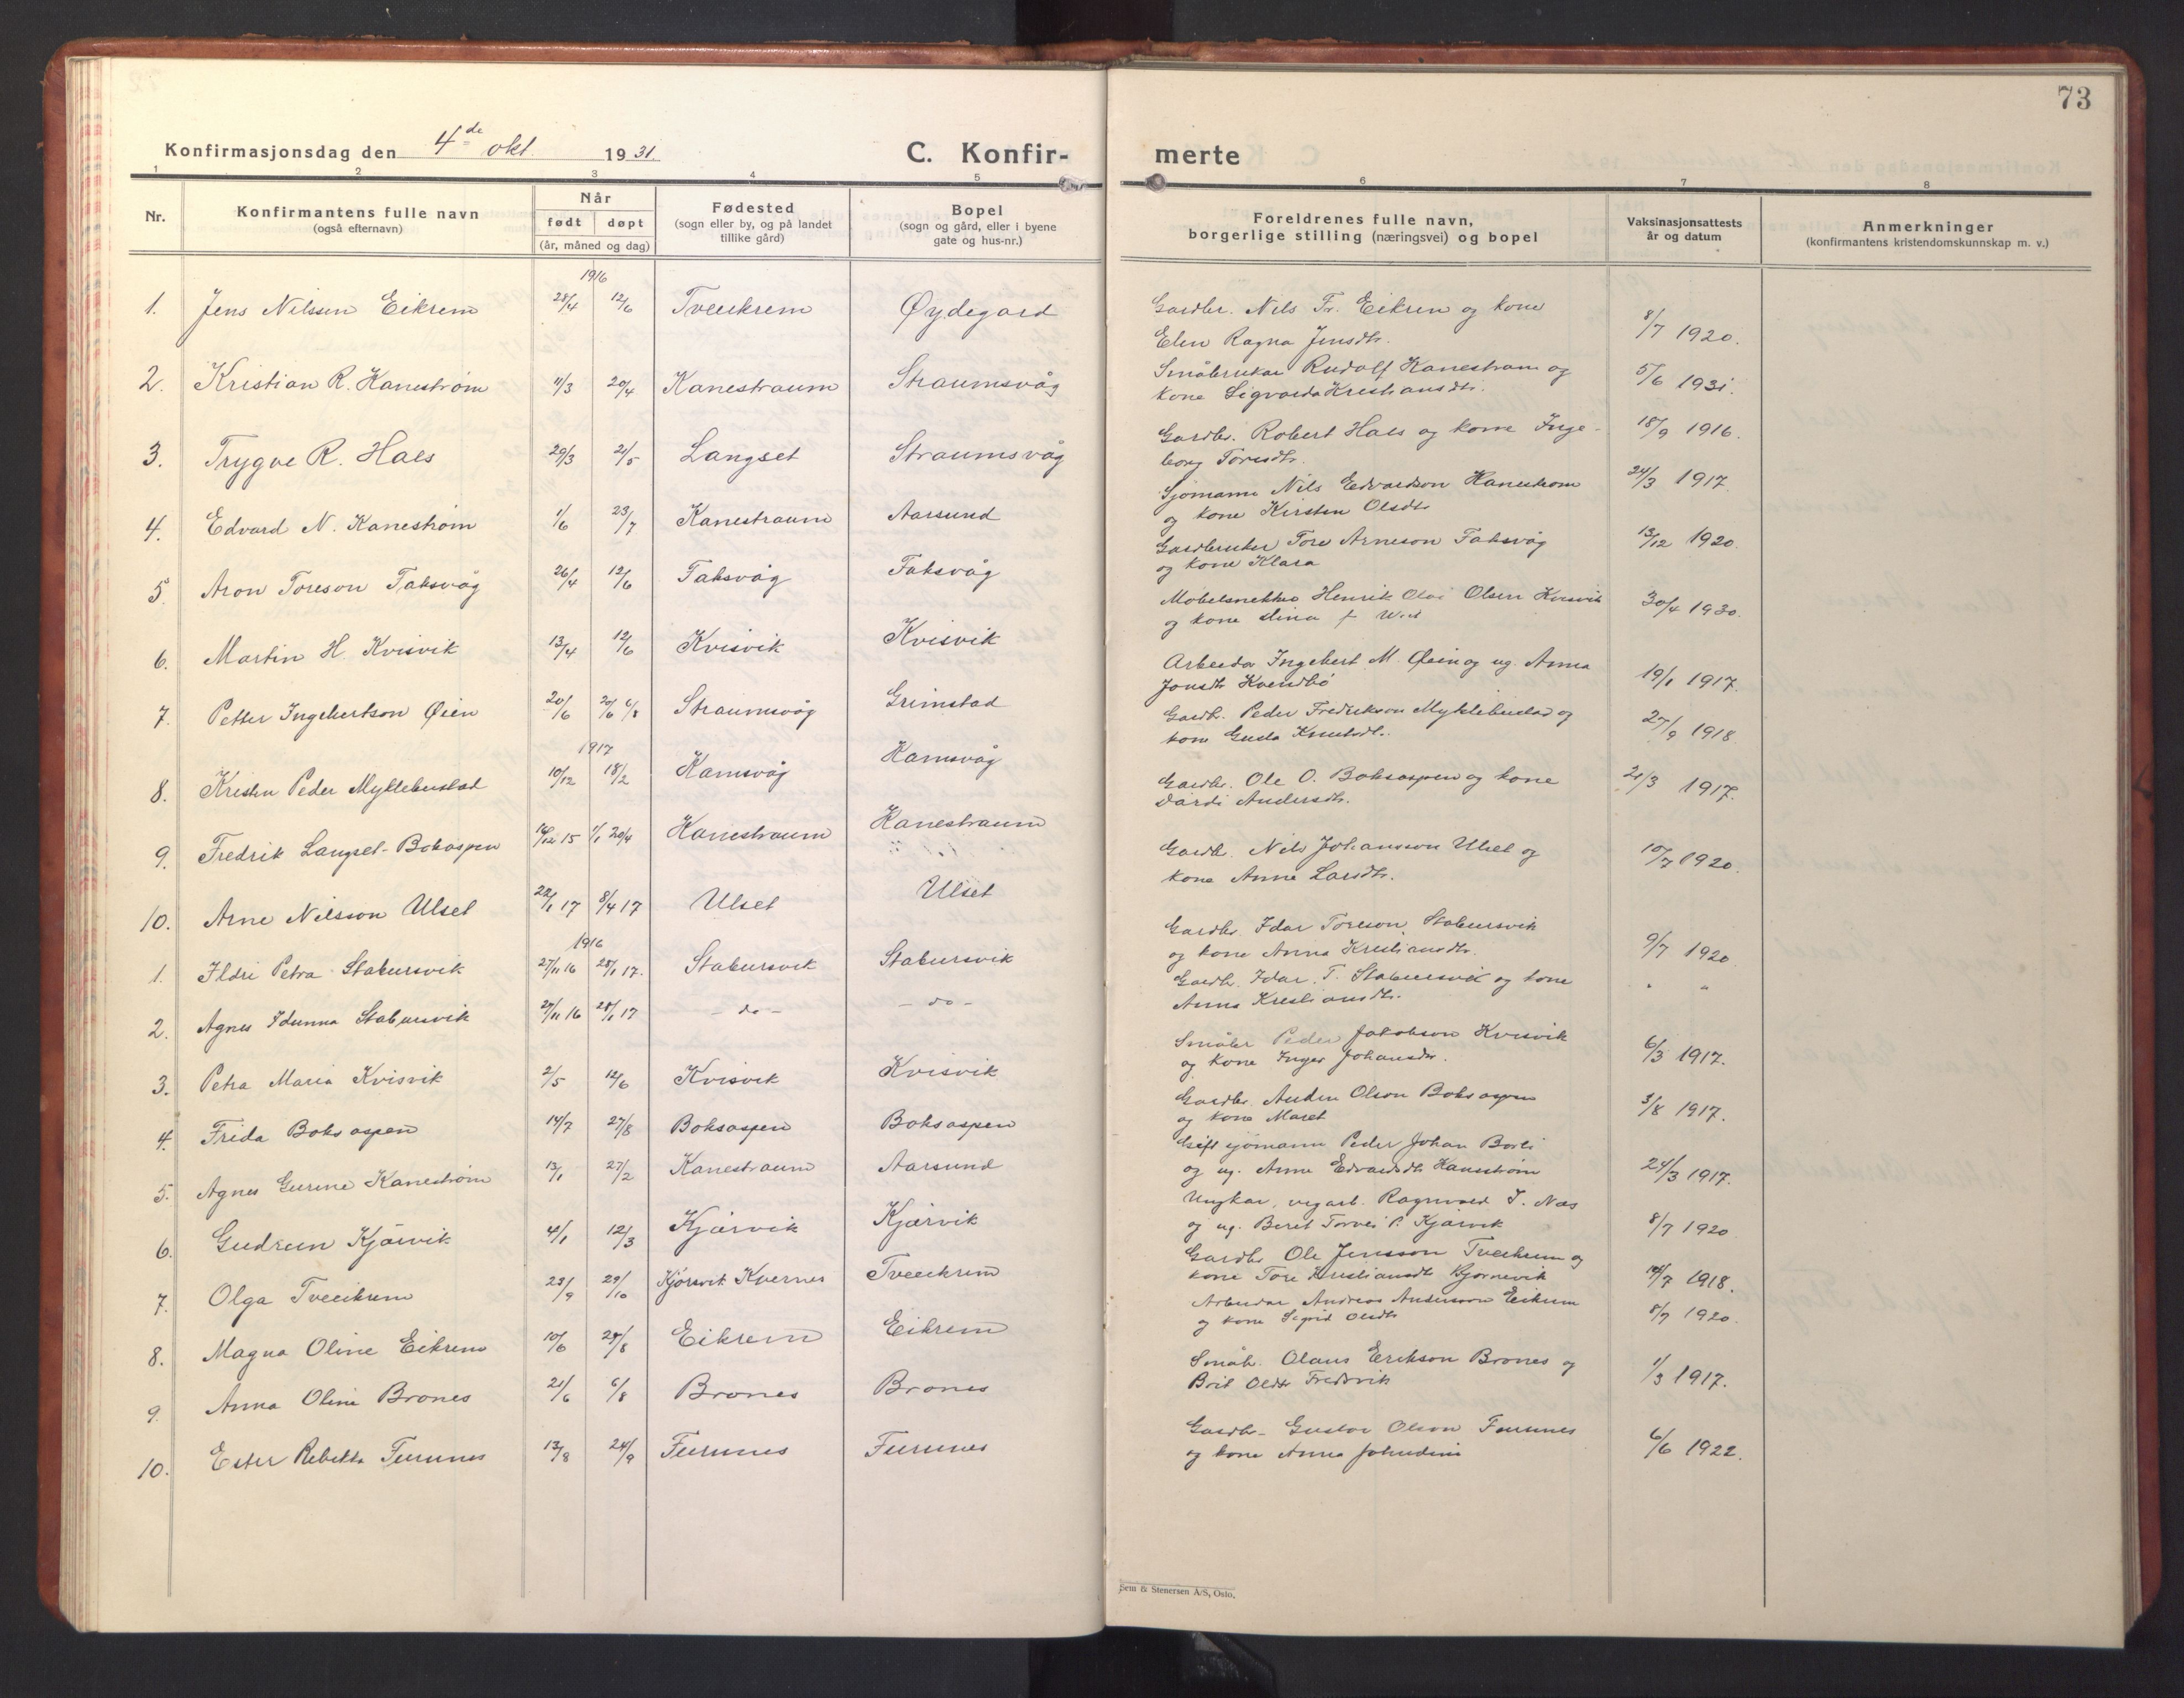 73
Konfirmasjonsdag den 4de okt. 1931 C. Konfir- merte
1 2 3 4 5 6 7 8
Nr. Konfirmantens fulle navn (også efternavn) Når født døpt (år, måned og dag) Fødested (sogn eller by, og på landet tillike gård) Bopel (sogn og gård, eller i byene gate og hus-nr.) Foreldrenes fulle navn, borgerlige stilling (næringsvei) og bopel Vaksinasjonsattests år og datum Anmerkninger (konfirmantens kristendomskunnskap m. v.)
1916
1. Jens Nilssen Eikrem 28/4 12/6 Tveeikrem Øydegard Gardbr. Nils Fr. Eikrem og kone
Elen Ragna Jensdtr. 8/7 1920.
2. Kristian R. Kanestrøm 11/3 20/4 Kanestraum Straumsvåg Småbruker Rudolf Kanestrøm og
kone Sigvarda Kristiansdtr. 5/6 1931.
3. Trygve R. Hals 29/3 21/5 Langset Straumsvåg Gardbr. Robert Hals og kone Inge-
borg Toresdtr. 18/9 1916.
4. Edvard N. Kanestrøm 1/6 23/7 Kanestraum Aarsund Sjømann Nils Edvardson Kanestrøm
og kone Kirsten Olsdtr 24/3 1917.
5. Aron Toreson Taksvåg 26/4 12/6 Taksvåg Taksvåg Gardbruker Tore Arneson Taksvåg
og kone Klara 13/12 1920.
6. Martin H. Kvisvik 13/4 12/6 Kvisvik Kvisvik Møbelsnekker Henrik Olai Olsen Kvisvik
og kone Stina f. 30/4 1930.
7. Petter Ingebertson Øien 20/6 20/6 6/8 Straumsvåg Grimstad Arbeider Ingebert M. Øien og ug. Anna
Jonsdtr Kvendbø 19/1 1917.
1917
8. Kristen Peder Myklebustad 10/12 18/2 Kamsvåg Kamsvåg Gardb. Peder Fredrikson Myklebustad og
kone Guda Knutsdtr. 27/9 1918
9. Fredrik Langset-Boksaspen 16/12 15 1/1 20/4 Kanestraum Kanestraum Gardbr. Ole O. Boksaspen og kone
Dardi Andersdtr. 21/3 1917.
10. Arne Nilsson Ulset 22/1 17 8/4 17 Ulset Ulset Gardb. Nils Johansson Ulset og
kone Anne Larsdtr. 10/7 1920.
1916
1. Ildri Petra Stabursvik 27/11 16 28/1 17. Stabursvik Stabursvik Gardbr. Idar Toreson Stabursvik
og kone Anna Kristiansdtr. 9/7 1920.
2. Agnes Idunna Stabursvik 27/11 16 28/1 17 - do - - do - Gardb. Idar T. Stabursvik og kone
Anna Kristiansdtr. " "
3. Petra Maria Kvisvik 2/5 12/6 Kvisvik Kvisvik Småbr Peder Jakobson Kvisvik
og kone Inger Johansdtr. 6/3 1917.
4. Frida Boksaspen 14/7 27/8 Boksaspen Boksaspen Gardbr. Anders Olson Boksaspen
og kone Maret 3/8 1917.
5. Agnes Gurine Kanestrøm 13/1 27/2 Kanestraum Aarsund Gift sjømann Peder Johan Borli
og ug. Anne Edvardsdtr Kanestrøm 24/3 1917.
6. Gudrun Kjårvik 4/1 12/3 Kjårvik Kjårvik Ungkar, vegarb. Ragnvald J. Næs
og ug. Beret P. Kjårvik 8/7 1920
7. Olga Tveeikrem 23/9 29/10 Kjørsvik Kvernes Tveeikrem Gardbr Ole Jensson Tveeikrem og
kone Tore Kristiansdtr Bjørnevik 14/7 1918.
8. Magna Oline Eikrem 10/6 27/8 Eikrem Eikrem Arbeidar Andreas Andersson Eikrem
og kone Sigrid Olsdtr 8/7 1920.
9. Anna Oline Brones 21/6 6/8 Brones Brones Småb. Olaus Erikson Brones og
Brit Oldtr Fredsvik 1/3 1917.
10. Ester Rebekka Furunes 13/8 24/9 Furunes Furunes Gardb. Gustav Olson Furunes
og kone Anna 6/6 1922.
Sem & Stenersen A/S, Oslo.